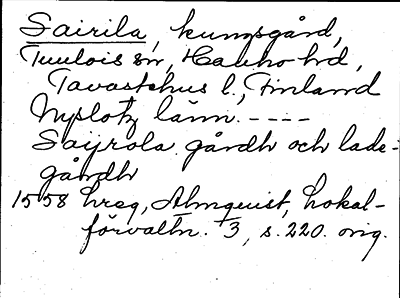 Sairila, kungsgård,
Tuulois sn, Hauho hd,
Tavastehus l., Finland
Nyslotz länn. ----
Saijrola gårdh och lade-
gårdh
1558 hreg, Almquist, Lokal-
förvaltn. 3, s. 220. orig.